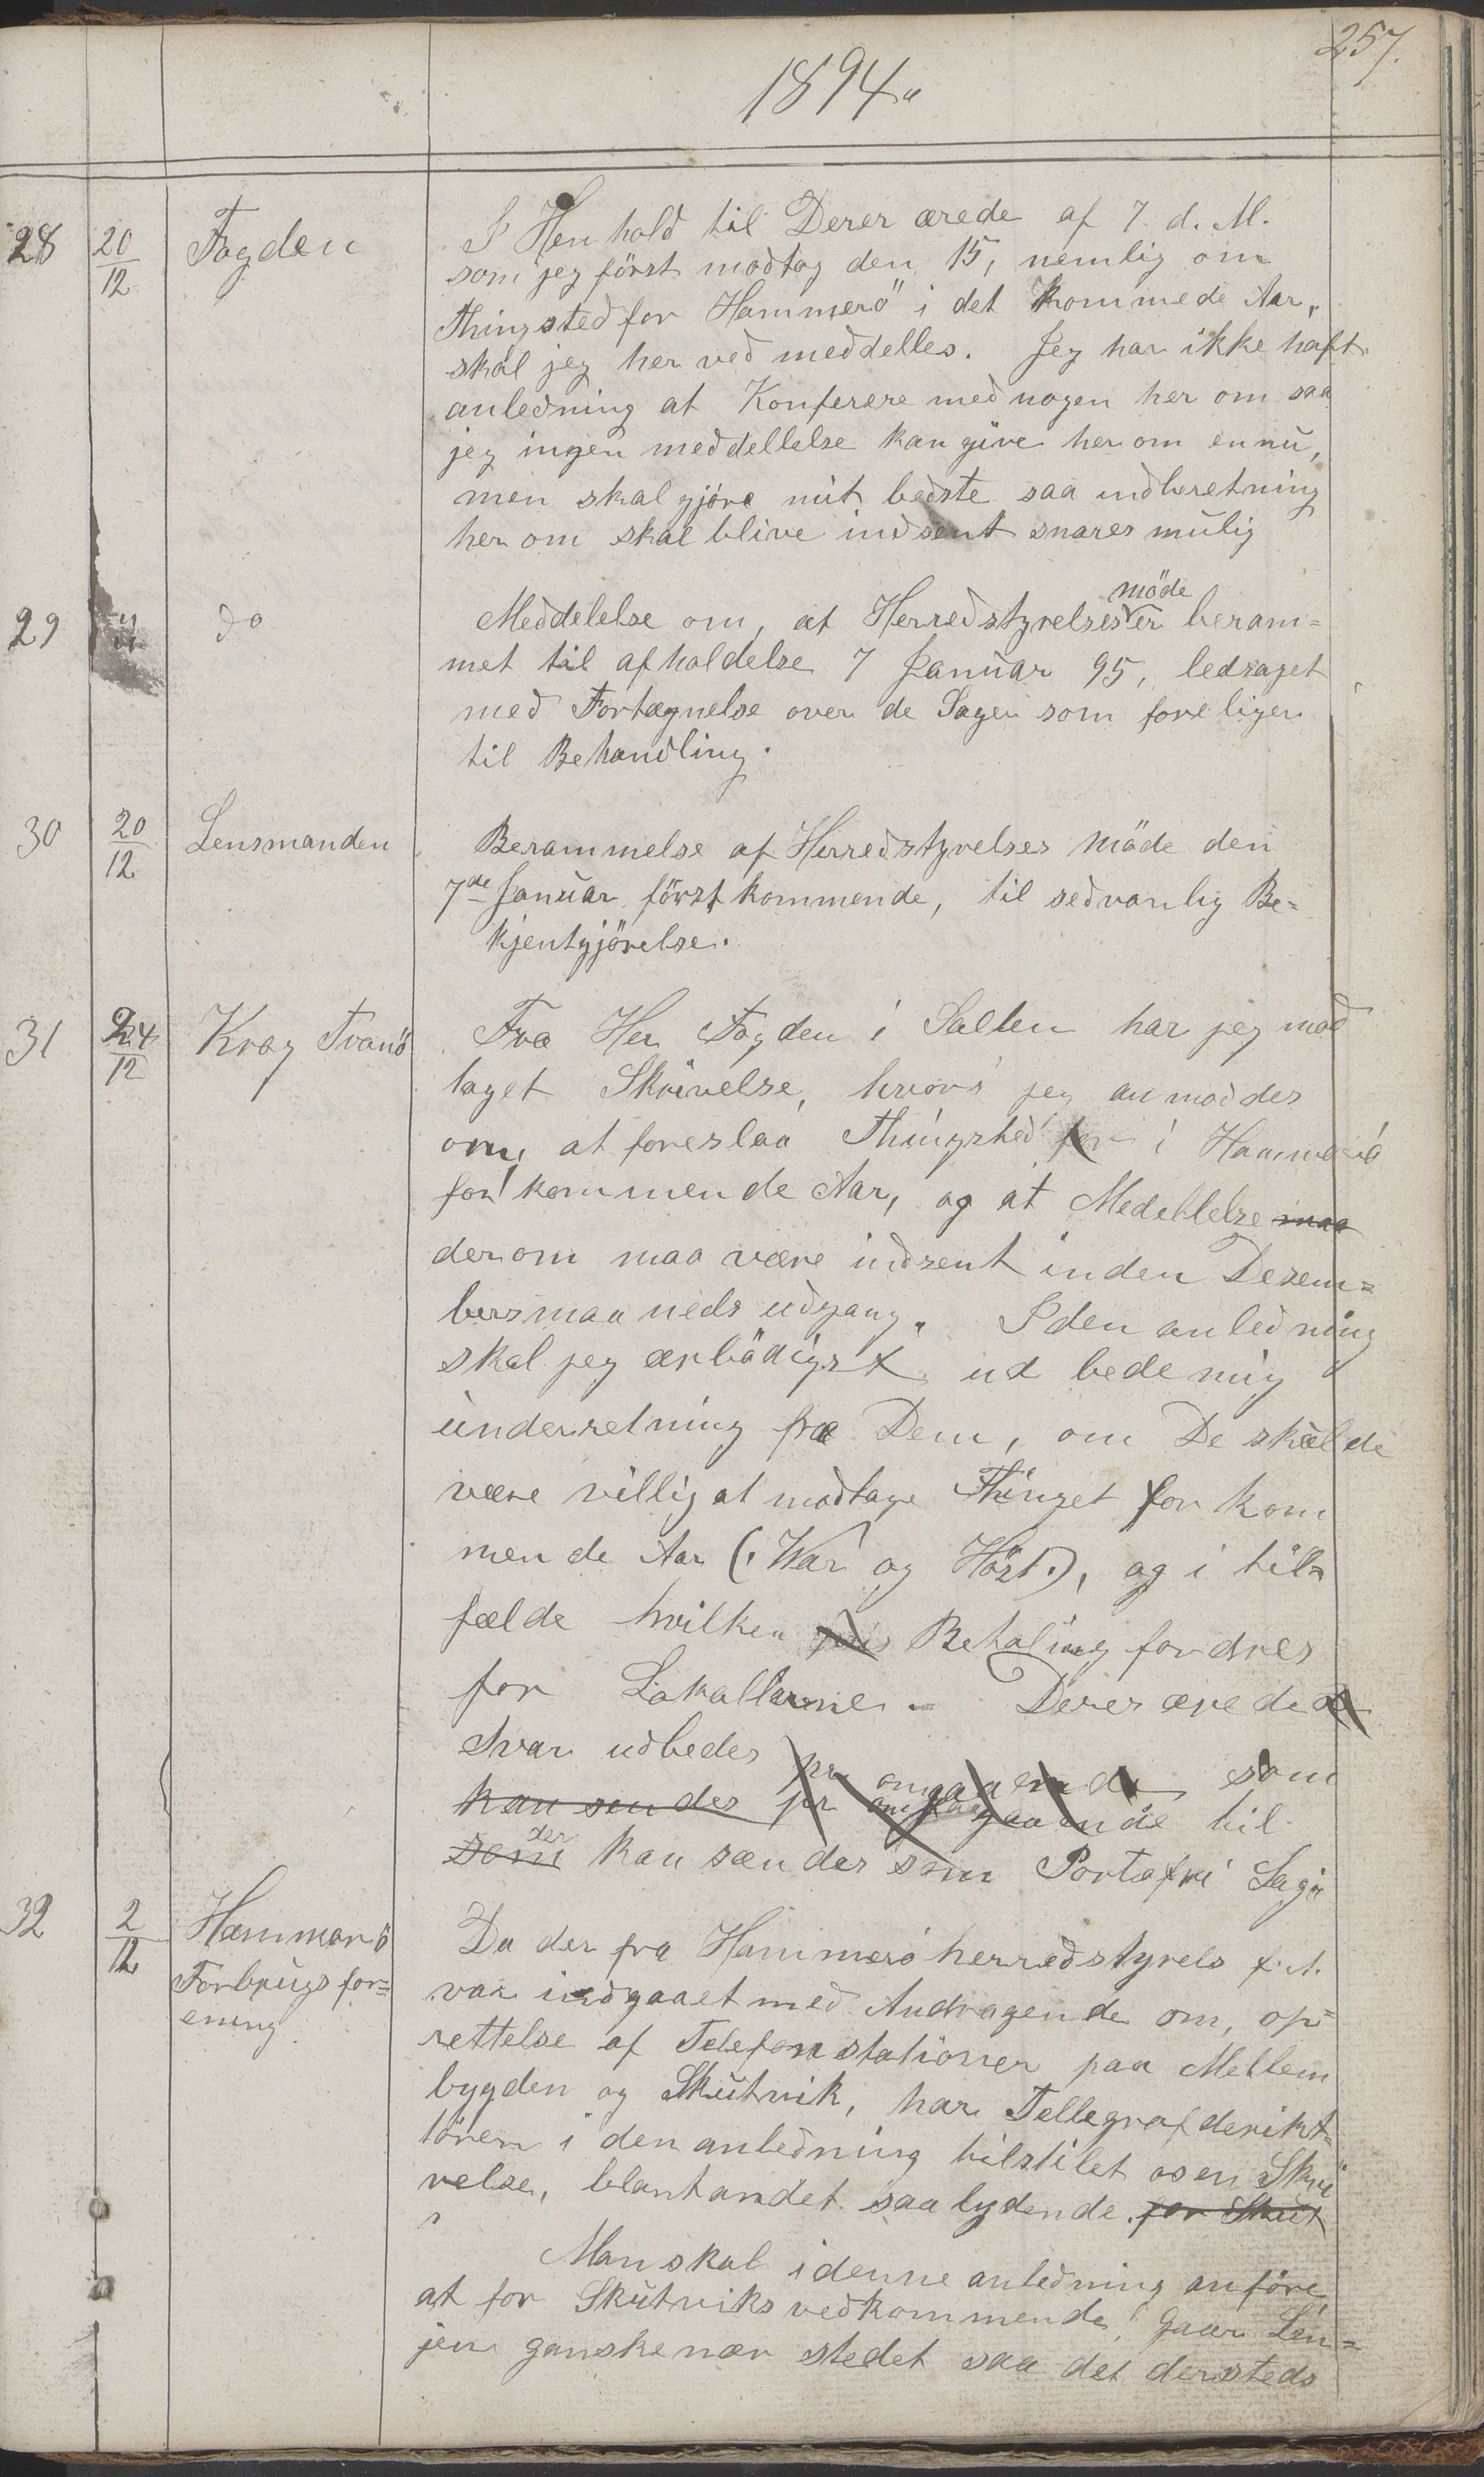 257.
1894"
28 20/12 Fogden
I Henhold til Derer ærede af 7 d. M.
som jeg först modtog den 15, nemlig om
Thingsted for Hammerö i det kommede Aar,
skal jeg her ved meddelles. Jeg har ikke haft
anledning at Konferere med nogen her om saa
jeg ingen meddellelse kan give her om ennu,
men skal gjöre mit bedste saa indberetning
her om skal blive indsent snares mulig
29 " do
möde
Meddelelse om, at Herredstyrelses er beram=
met til afholdelse 7 Januar 95, ledsaget
med Fortægnelse over de Sager som foreliger
til Behandling.
30 20/12 Lensmanden
Berammelse af Herredstyrelses Möde den
7de Januar först kommende, til sedvanlig Be=
kjentgjörelse.
31 24/12 Krag Tranö
Fra Her Fogden i Salten har jeg mod
taget Skrivelse, hvori jeg anmoddes
om, at foreslaa Thingsted for i Hammerö
for kommende Aar, og at Medellelse maa
derom maa være indsent inden Desem=
bersmaaneds udgang. I den anledning
skal jeg ærbödigst ud bede mig
underretning fra Dem, om De skulde
være villig at modtage Thinget for kom
mende Aar (: Vaar og Höst :), og i til=
fælde hvilken pris Betaling fordres
for Lokallerne. – Derer ærede
Svar udbedes pr omgaaende som
kan sendes pr omgaaende til
der
som kan sændes som Portofri Sag"
32 2/12 Hammerö
Forbrugsfor=
ening
Da der fra Hammerö herredstyrels f. A.
var indgaaet med Andragende om, op=
rettelse af Telefonstationer paa Mellem
bygden og Skutvik, har Tellegrafderikt=
tören i den anledning tilstilet os en Skri
velse, blant andet saa lydende for Skut
Man skal i denne anledning anföre
at for Skutviks vedkommende gaar Lin=
jen ganske nær stedet saa det dersteds